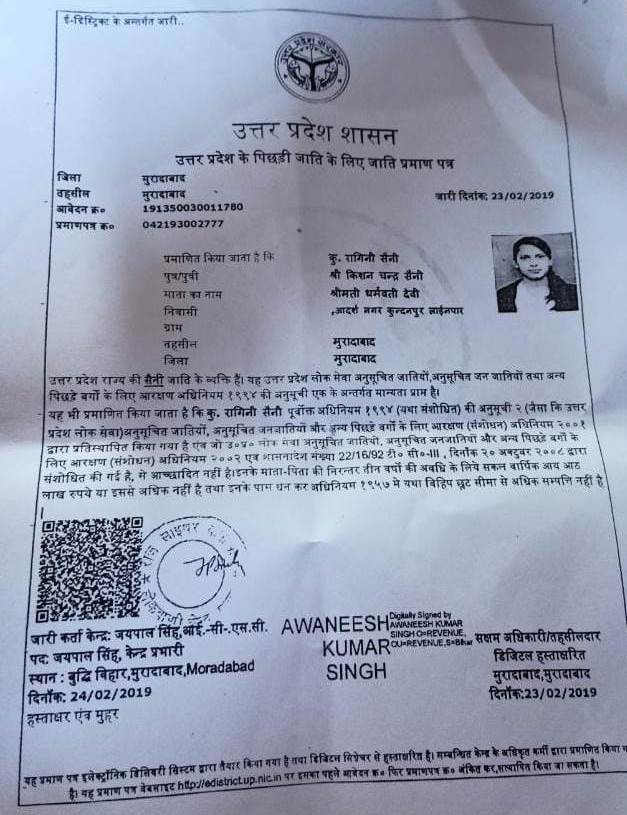 ई-डिस्ट्रिक्ट के अन्तर्गत जारी..
उत्तर प्रदेश शासन
उत्तर प्रदेश के पिछड़ी जाति के लिए जाति प्रमाण पत्र
जिला मुरादाबाद
तहसील मुरादाबाद जारी दिनांक: 23/02/2019
आवेदन क्र० 191350030011780
प्रमाणपत्र क्र० 042193002777
प्रमाणित किया जाता है कि कु. रागिनी सैनी
पुत्र/पुत्री श्री किशन चन्द्र सैनी
माता का नाम श्रीमती धर्मवती देवी
निवासी ,आदर्श नगर कुन्दनपुर लाईनपार
ग्राम
तहसील मुरादाबाद
जिला मुरादाबाद
उत्तर प्रदेश राज्य की सैनी जाति के व्यक्ति हैं। यह उत्तर प्रदेश लोक सेवा अनुसूचित जातियों,अनुसूचित जन जातियों तथा अन्य
पिछड़े वर्गों के लिए आरक्षण अधिनियम १९९४ की अनुसूची एक के अन्तर्गत मान्यता प्राप्त है।
यह भी प्रमाणित किया जाता है कि कु. रागिनी सैनी पूर्वोक्त अधिनियम १९९४ (यथा संशोधित) की अनुसूची २ (जैसा कि उत्तर
प्रदेश लोक सेवा)अनुसूचित जातियों, अनुसूचित जनजातियों और अन्य पिछड़े वर्गों के लिए आरक्षण (संशोधन) अधिनियम २००१
द्वारा प्रतिस्थापित किया गया है एंव जो उ०प्र० लोक सेवा अनुसूचित जातियों, अनुसूचित जनजातियों और अन्य पिछड़े वर्गों के
लिए आरक्षण (संशोधन) अधिनियम २००२ एंव शासनादेश संख्या 22/16/92 टी० सी०-III , दिनाँक २० अक्टूबर २००८ द्वारा
संशोधित की गई है, से आच्छादित नहीं है।इनके माता-पिता की निरन्तर तीन वर्षों की अवधि के लिये सकल वार्षिक आय आठ
लाख रुपये या इससे अधिक नहीं है तथा इनके पास धन कर अधिनियम १९५७ में यथा विहित छूट सीमा से अधिक सम्पत्ति नहीं है
जारी कर्ता केन्द्र: जयपाल सिंह,आई.-सी-.एस.सी.
पद: जयपाल सिंह, केन्द्र प्रभारी
स्थान : बुद्धि विहार,मुरादाबाद,Moradabad
दिनाँक: 24/02/2019
हस्ताक्षर एंव मुहर
AWANEESH
KUMAR
SINGH
Digitally Signed by
AWANEESH KUMAR
SINGH O=REVENUE,
OU=REVENUE,S=Bihar
सक्षम अधिकारी/तहसीलदार
डिजिटल हस्ताक्षरित
मुरादाबाद,मुरादाबाद
दिनाँक:23/02/2019
यह प्रमाण पत्र इलेक्ट्रॉनिक डिलिवरी सिस्टम द्वारा तैयार किया गया है तथा डिजिटल सिग्नेचर से हस्ताक्षरित है। सम्बन्धित केन्द्र के अधिकृत कर्मी द्वारा प्रमाणित किया
है। यह प्रमाण पत्र वेबसाइट http://edistrict.up.nic.in पर इसका पहले आवेदन क्र० फिर प्रमाणपत्र क्र० अंकित कर,सत्यापित किया जा सकता है।